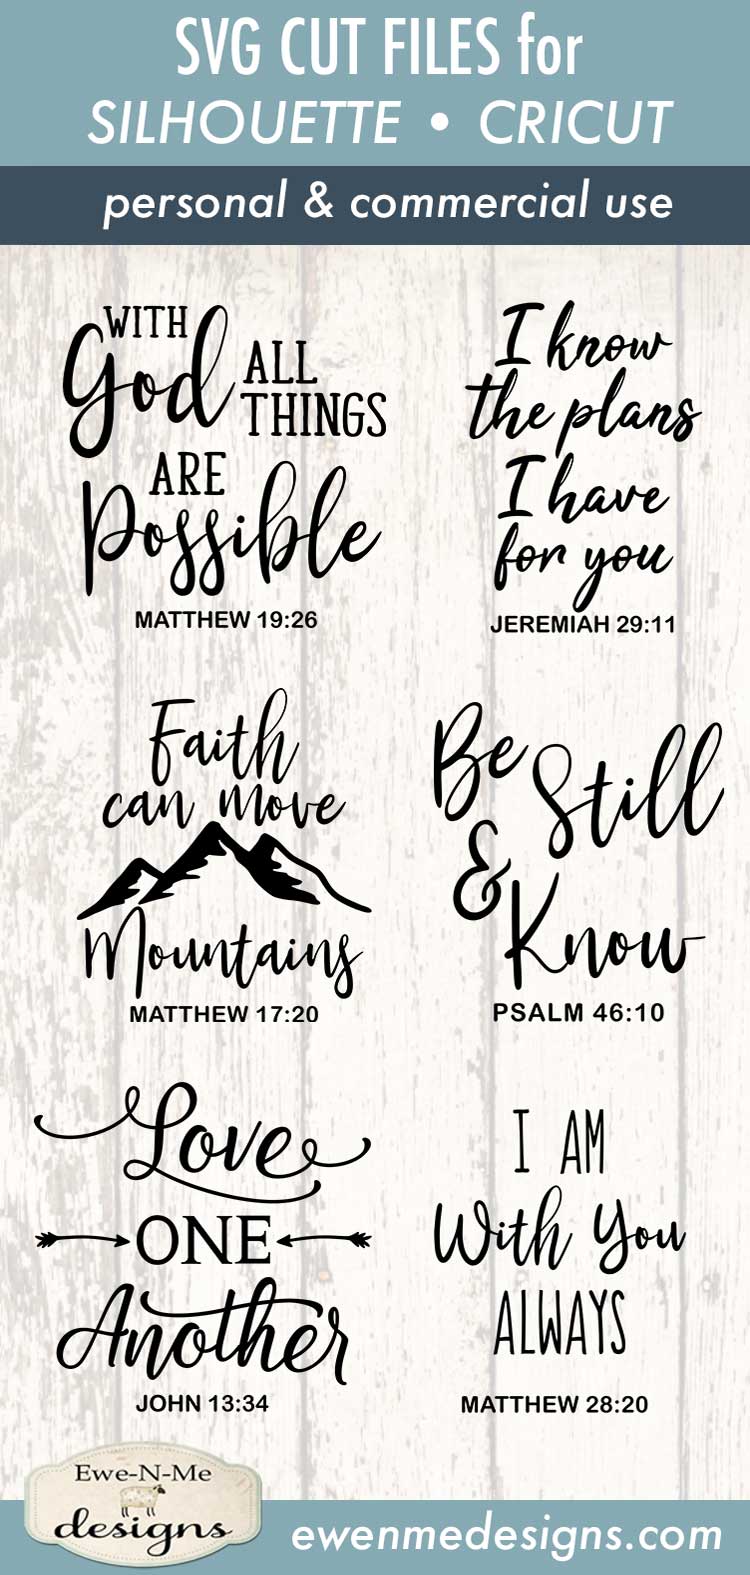 SVG CUT FILES for
SILHOUETTE • CRICUT
personal & commercial use
WITH
God ALL
THINGS
ARE
Possible
MATTHEW 19:26
I know
the plans
I have
for you
JEREMIAH 29:11
Faith
can move
Mountains
MATTHEW 17:20
Be
Still
&
Know
PSALM 46:10
Love
ONE
Another
JOHN 13:34
I AM
With You
ALWAYS
MATTHEW 28:20
Ewe-N-Me
designs
ewenmedesigns.com